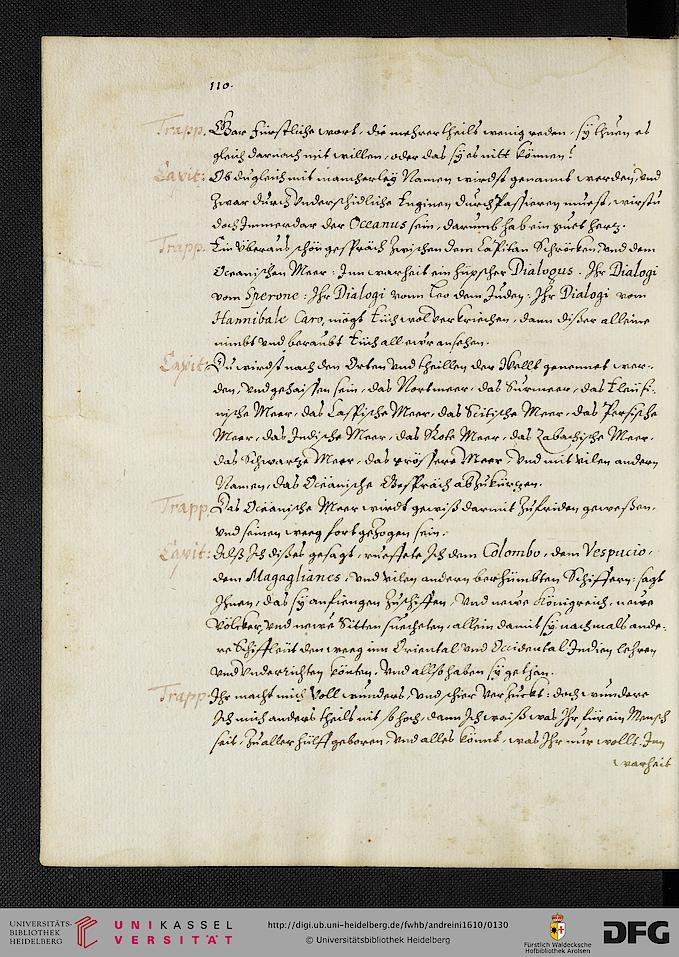 110.
Trapp. Gar Fürstliche wort, die mehrertheils wenig reden, sÿ thuen es
gleich darnach mit willen, oder das sÿ es nitt können!
Capit: Ob du gleich mit mancherleÿ Namen wirdst genannt werden, und
zwar durch underschidliche Enginen durchpassieren muest, wirstu
doch Immerdar der Oceanus sein, darumb hab ein guet hertz.
Trapp. Ein überaus schön gespräch zwischen dem Capitan Schröcken, und dem
Oceanischen Meer: Inn warheit ein hüpscher Dialogus. Ihr Dialogi
vom Sperone: Ihr Dialogi vonn Leo dem Juden: Ihr Dialogi vom
Hannibale Caro, mögt Euch wol verkriechen, dann diser alleine
nimbt und beraubt Euch all ewr ansehen.
Capit: Du wirdst nach den Orten und theillen der Wellt genennet wer-
den, und gehaissen sein, das Nortmeer, das Surmeer, das
nische Meer, das Caspische Meer, das Scitische Meer, das Persische
Meer, das Indische Meer, das Rote Meer, das Zabachische Meer,
das Schwartze Meer, das grössere Meer, und mit vilen andern
Namen, das Oceanische Gespräch abzukürtzen.
Trapp. Das Oceanische Meer wirdt gewiß darmit zufriden geweßen,
und seinen weeg fortgezogen sein.
Capit: Alß Ich dißes gesagt, rueffete Ich dem Colombo, dem Vespucio,
dem Magaglianes, und vilen andern berhümbten Schiffern: sagt
Ihnen, das sÿ anfiengen zuschiffen, und newe Königreich, newe
Völcker, und newe Sitten suecheten, allein damit sÿ nachmals ande-
re Schiffleüt den weeg inn Oriental und Occidental Indien lehren
und underrichten könten, und allso haben sÿ gethan.
Trapp. Ihr macht mich voll wunders, und schier verzuckt: doch wundere
Ich mich anders theils nit so hoch, dann Ich waiß was Ihr für ein Mensch
seit, zu aller hülff geboren, und alles könnt, was Ihr nur wollt. Inn
warheit
UNIVERSITÄTS-
BIBLIOTHEK
HEIDELBERG
UNIKASSEL
VERSITÄT
http://digi.ub.uni-heidelberg.de/fwhb/andreini1610/0130
© Universitätsbibliothek Heidelberg
Fürstlich Waldecksche
Hofbibliothek Arolsen
DFG